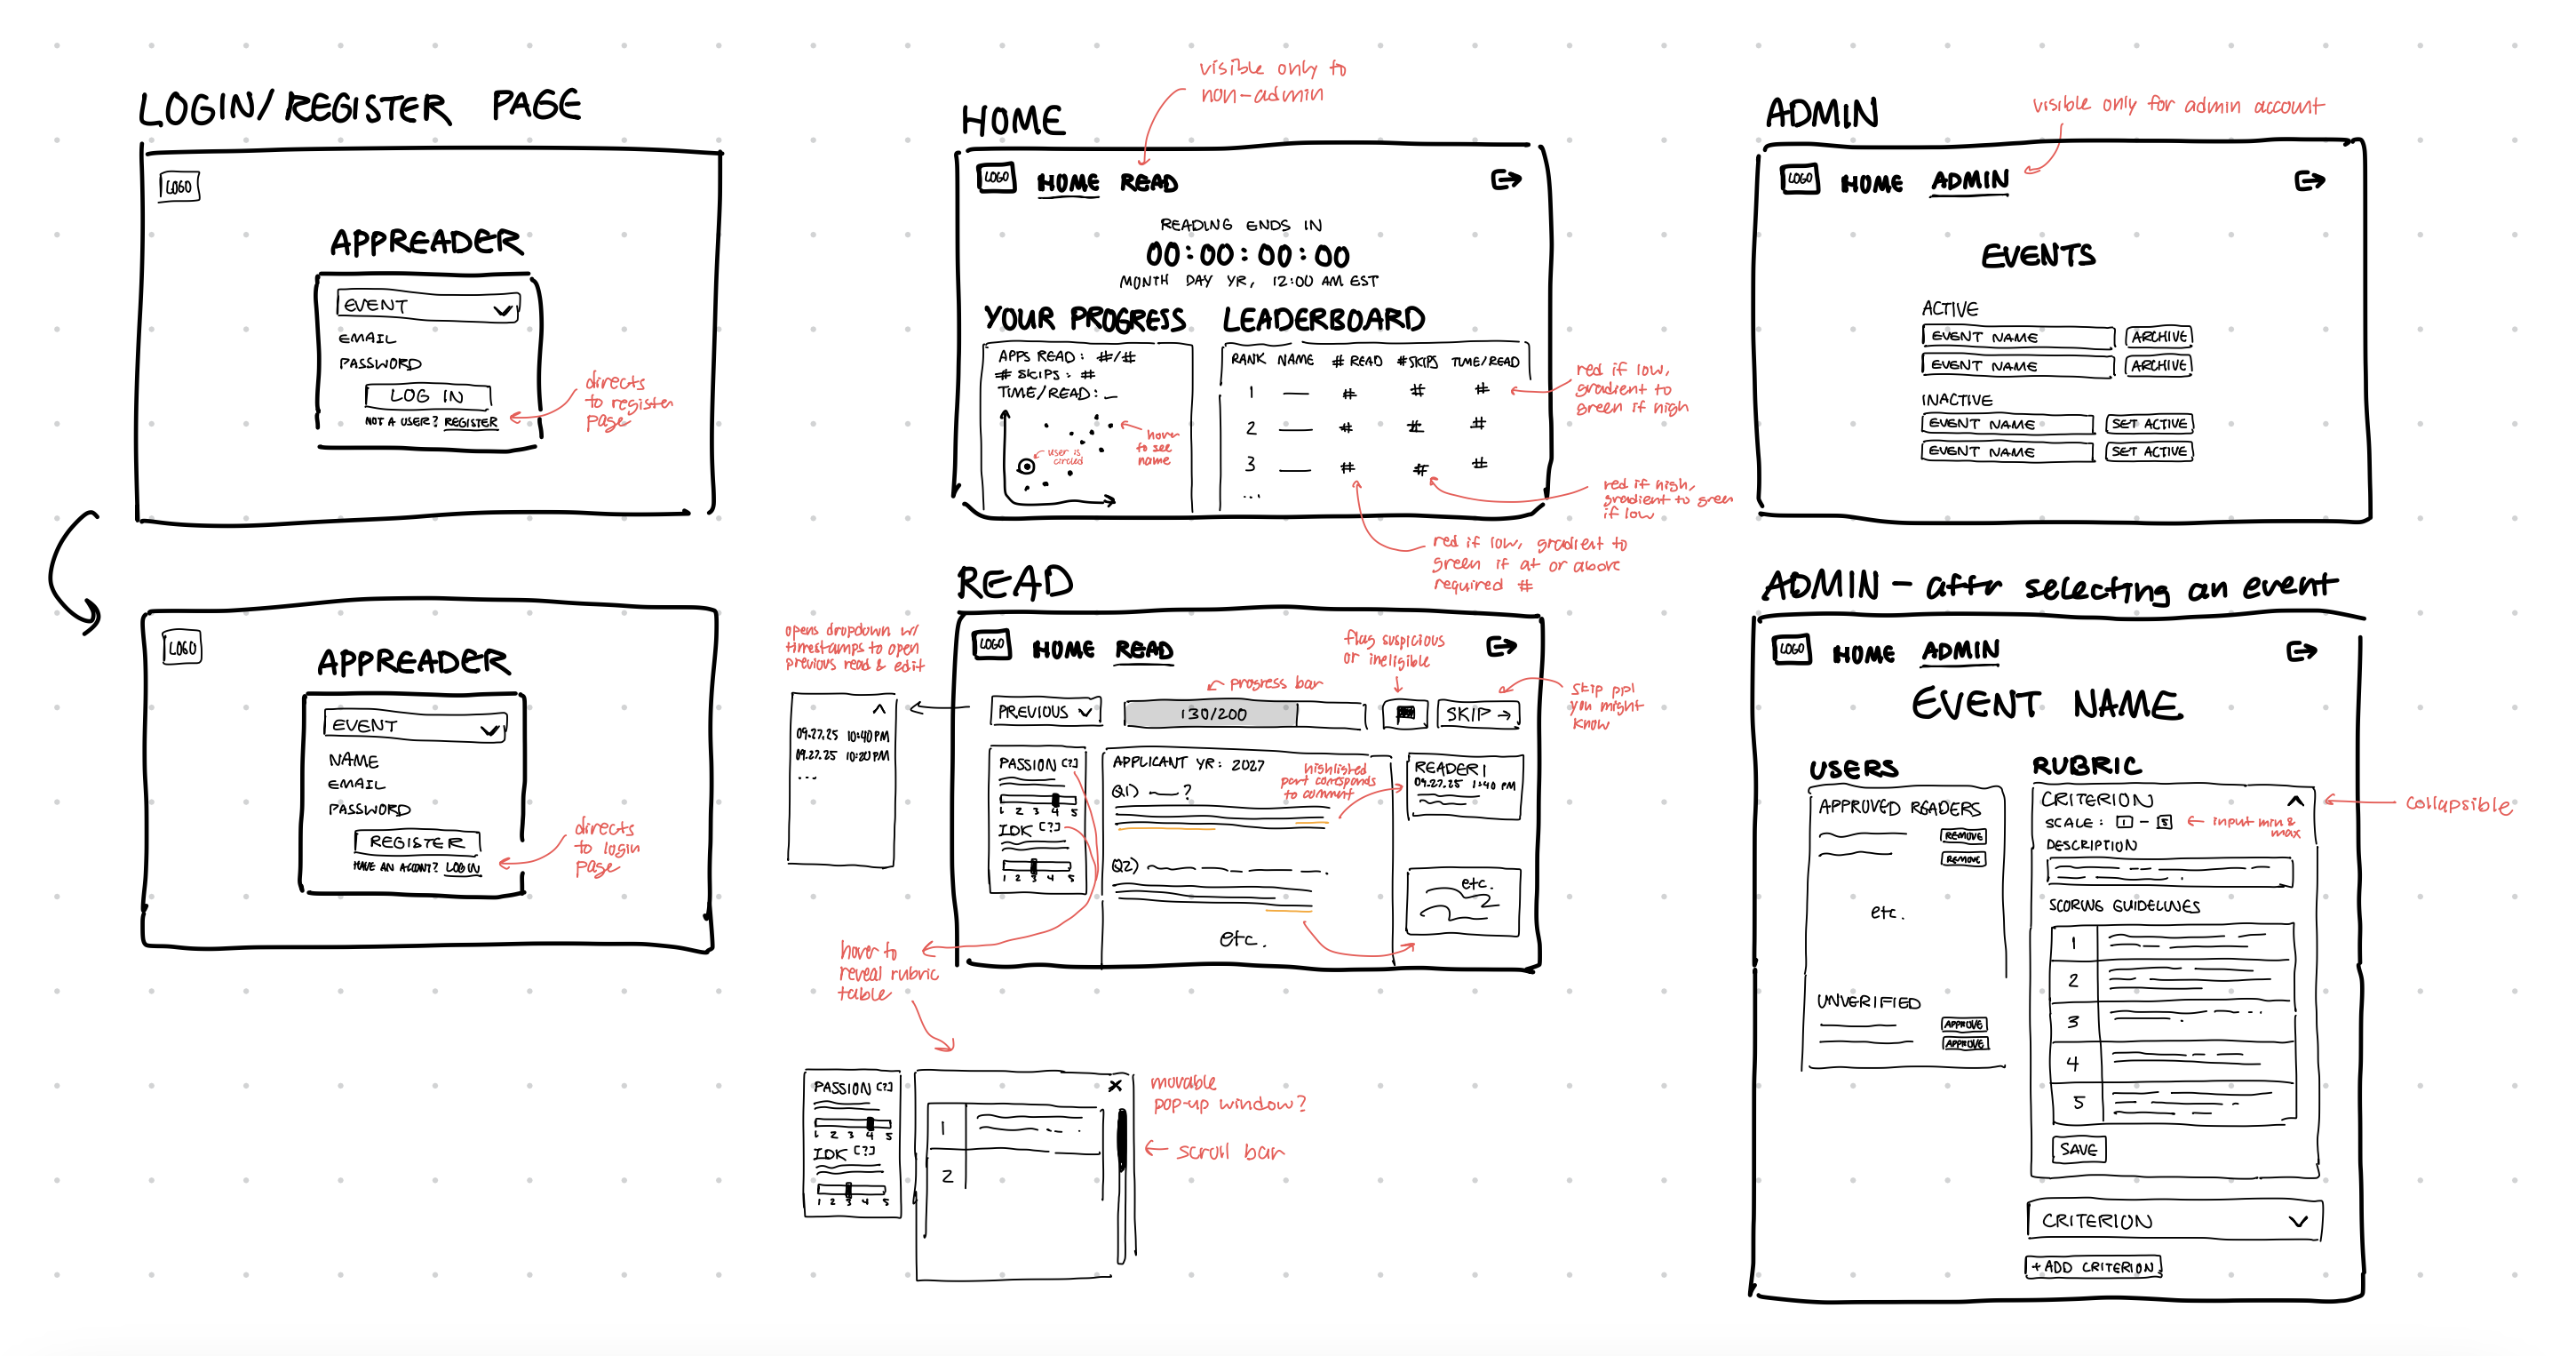 LOGIN/REGISTER PAGE
LOGO
APPREADER
EVENT
EMAIL
PASSWORD
LOG IN
NOT A USER? REGISTER
directs
to register
page
LOGO
APPREADER
EVENT
NAME
EMAIL
PASSWORD
REGISTER
HAVE AN ACCOUNT? LOG IN
directs
to login
page
visible only to
non-admin
HOME
LOGO HOME READ
READING ENDS IN
00:00:00:00
MONTH DAY YR, 12:00 AM EST
YOUR PROGRESS
APPS READ: #/#
# SKIPS: #
TIME/READ: _
hover
to see
name
user is
circled
LEADERBOARD
RANK NAME # READ #SKIPS TIME/READ
1 — # # #
2 — # # #
3 — # # #
...
red if low,
gradient to
green if high
red if high,
gradient to green
if low
red if low, gradient to
green if at or above
required #
READ
opens dropdown w/
timestamps to open
previous read & edit
09.27.25 10:40 PM
09.27.25 10:20 PM
...
LOGO HOME READ
flag suspicious
or ineligible
progress bar
skip ppl
you might
know
PREVIOUS
130/200
SKIP →
PASSION [?]
1 2 3 4 5
IDK [?]
1 2 3 4 5
APPLICANT YR: 2027
highlighted
part corresponds
to comment
Q1) —?
Q2)
etc.
READER 1
09.27.25 1:40 PM
etc.
hover to
reveal rubric
table
PASSION [?]
1 2 3 4 5
IDK [?]
1 2 3 4 5
X
1
2
movable
pop-up window?
scroll bar
ADMIN
visible only for admin account
LOGO HOME ADMIN
EVENTS
ACTIVE
EVENT NAME ARCHIVE
EVENT NAME ARCHIVE
INACTIVE
EVENT NAME SET ACTIVE
EVENT NAME SET ACTIVE
ADMIN - aftr selecting an event
LOGO HOME ADMIN
EVENT NAME
USERS
APPROVED READERS
REMOVE
REMOVE
etc.
UNVERIFIED
APPROVE
APPROVE
RUBRIC
CRITERION
collapsible
SCALE: 1 - 5
input min &
max
DESCRIPTION
SCORING GUIDELINES
1
2
3
4
5
SAVE
CRITERION
+ ADD CRITERION